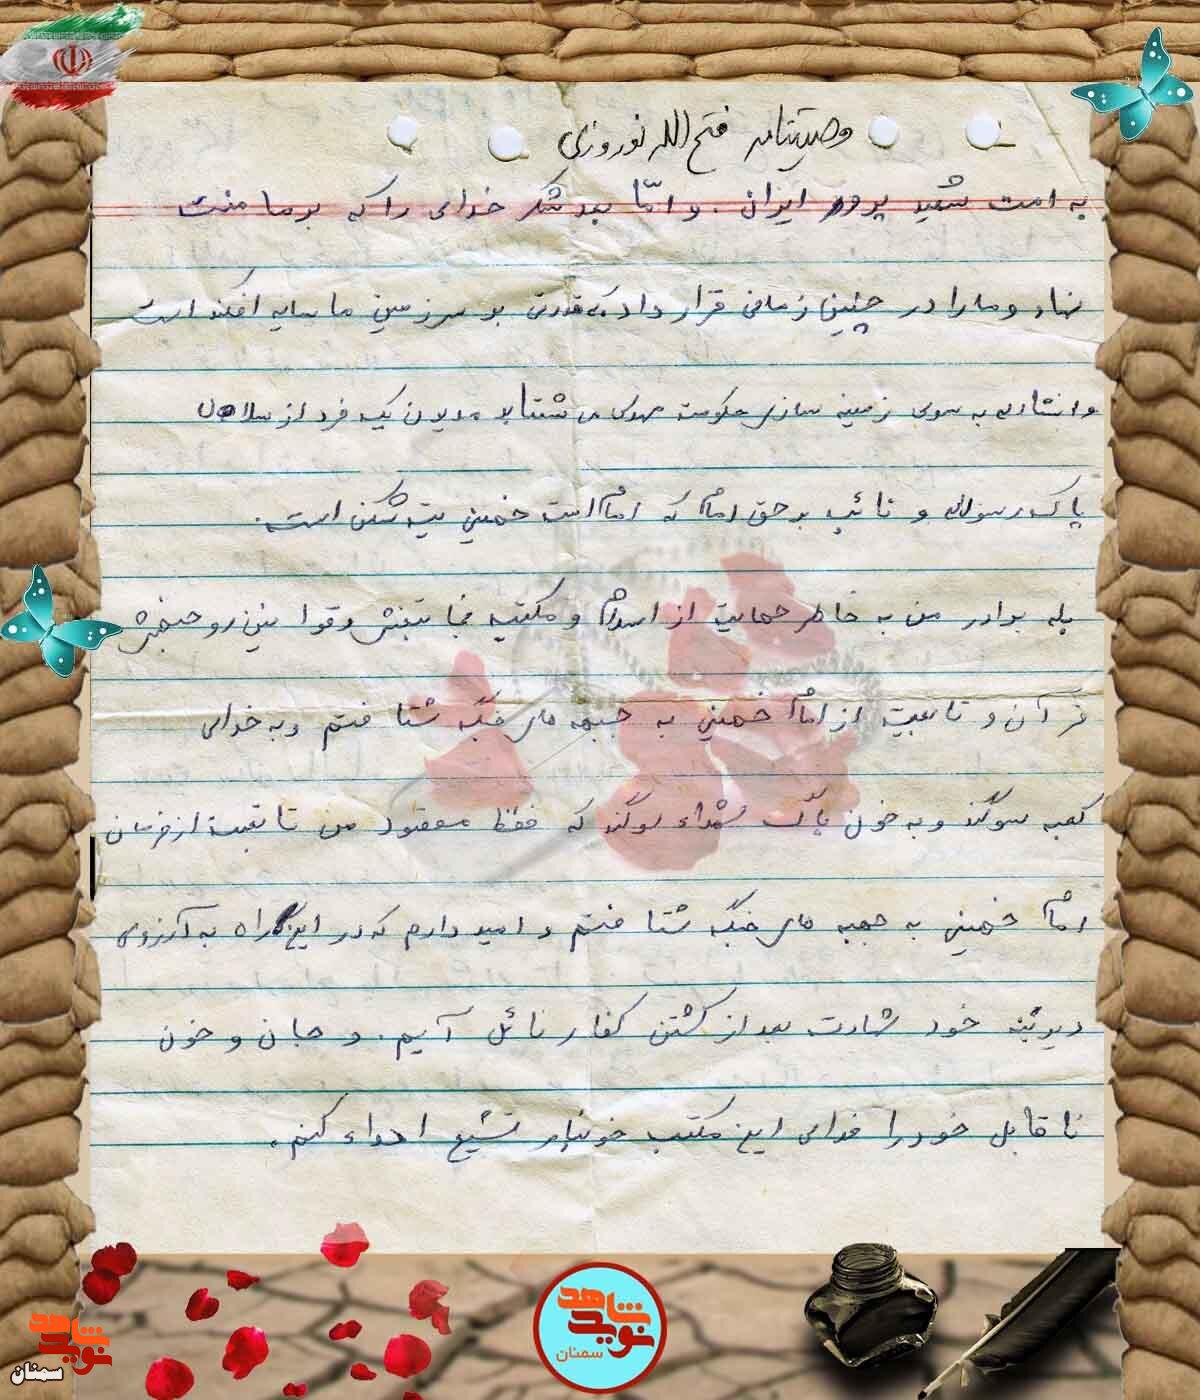 وصیتنامه فتح الله نوروزی
به امت شهید پرور ایران . و امّا بعد شکر خدای را که بر ما منت
نهاد و ما را در چنین زمانی قرار داد که قدرتی بر سرزمین ما سایه افکنده است
و انشاالله به سوی زمینه سازی حکومت مهدی می شتابد مدیون یک فرد از سلاله
پاک رسول الله و نائب بر حق امام که امام امت خمینی بت شکن است .
بله برادر من به خاطر حمایت از اسلام و مکتب نجاتبخش و قوانین روحبخش
قرآن و تابعیت از امام خمینی به جبهه های جنگ شتافتم و به خدای
کعبه سوگند و به خون پاک شهداء سوگند که فقط مقصود من تابعیت از فرمان
امام خمینی به جبهه های جنگ شتافتم و امید دارم که در این راه به آرزوی
دیرینه خود شهادت بعد از کشتن کفار نائل آیم . و جان و خون
ناقابل خود را فدای این مکتب خونبار تشیع اهداء کنم .
نوید شاهد
سمنان
نوید شاهد
سمنان